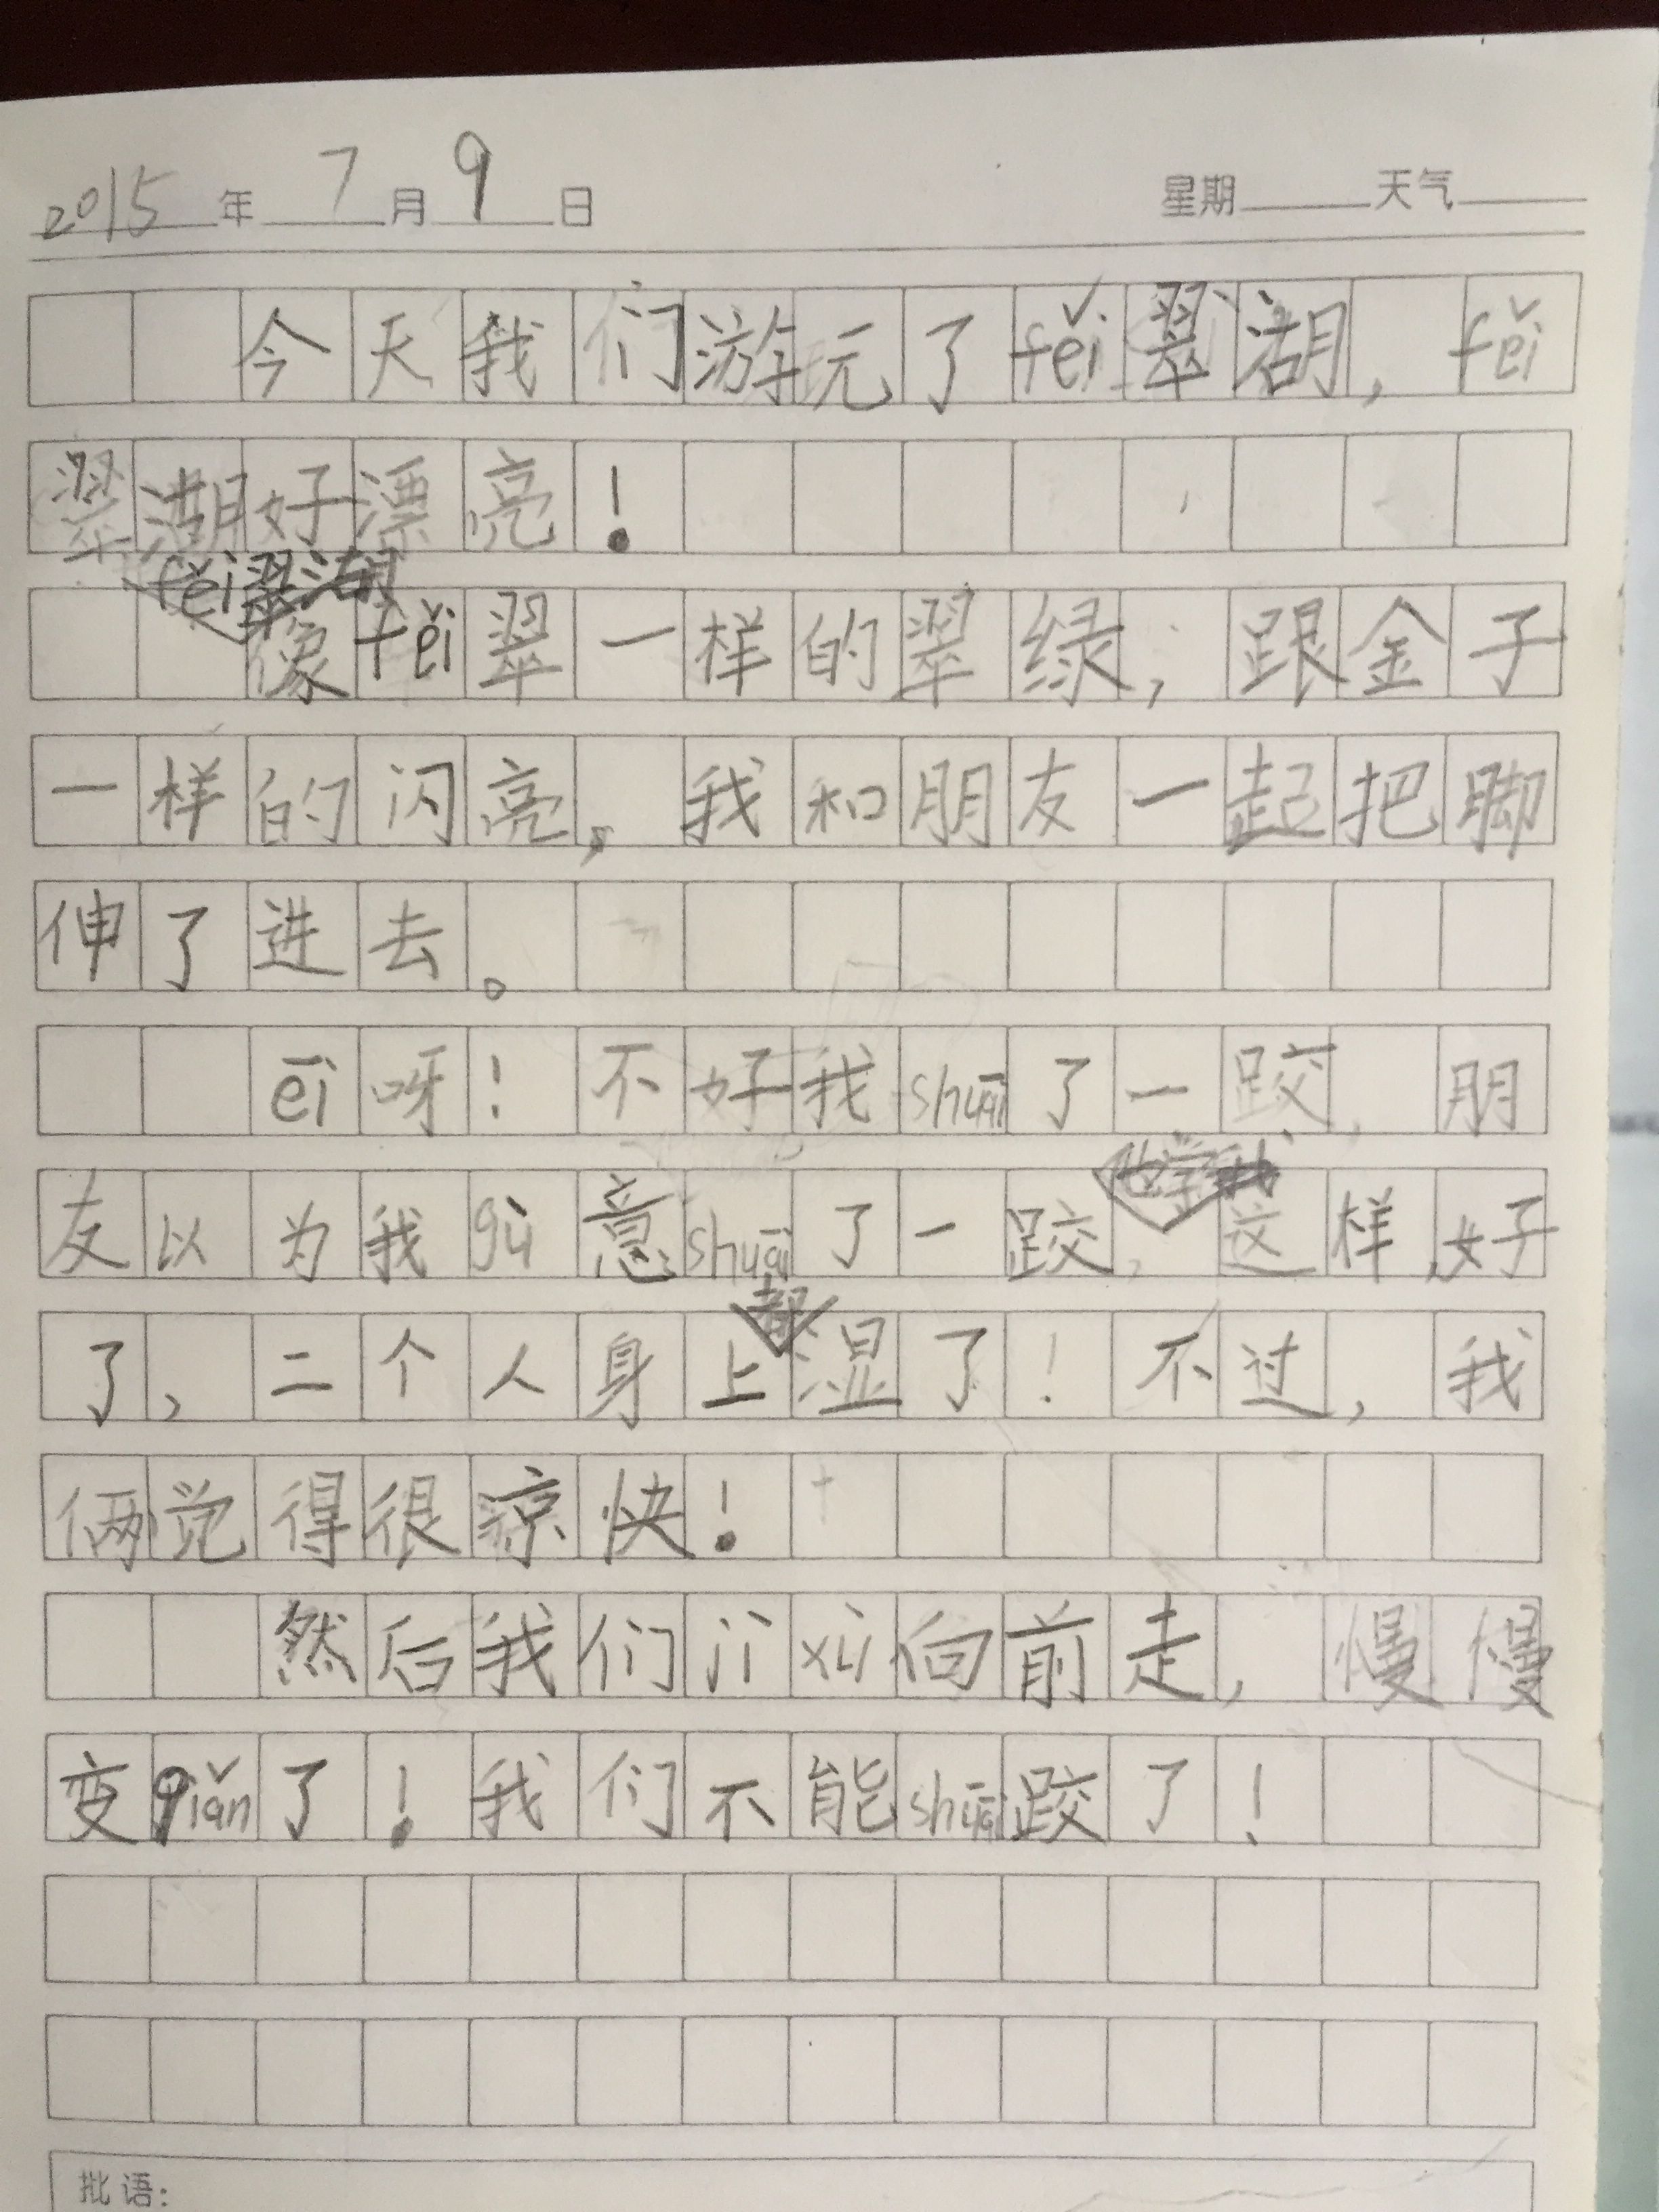 2015年7月9日 星期 天气
今天我们游玩了fěi翠湖，fěi
翠湖好漂亮！
fěi翠湖
像fěi翠一样的翠绿，跟金子
一样的闪亮，我和朋友一起把脚
伸了进去。
ēi呀！不好我shuāi了一跤，朋
友以为我gù意shuāi了一跤，他学我这样，好
了，二个人身上都湿了！不过，我
俩觉得很凉快！
然后我们jì xù向前走，慢慢
变qiǎn了！我们不能shuāi跤了！
批语：